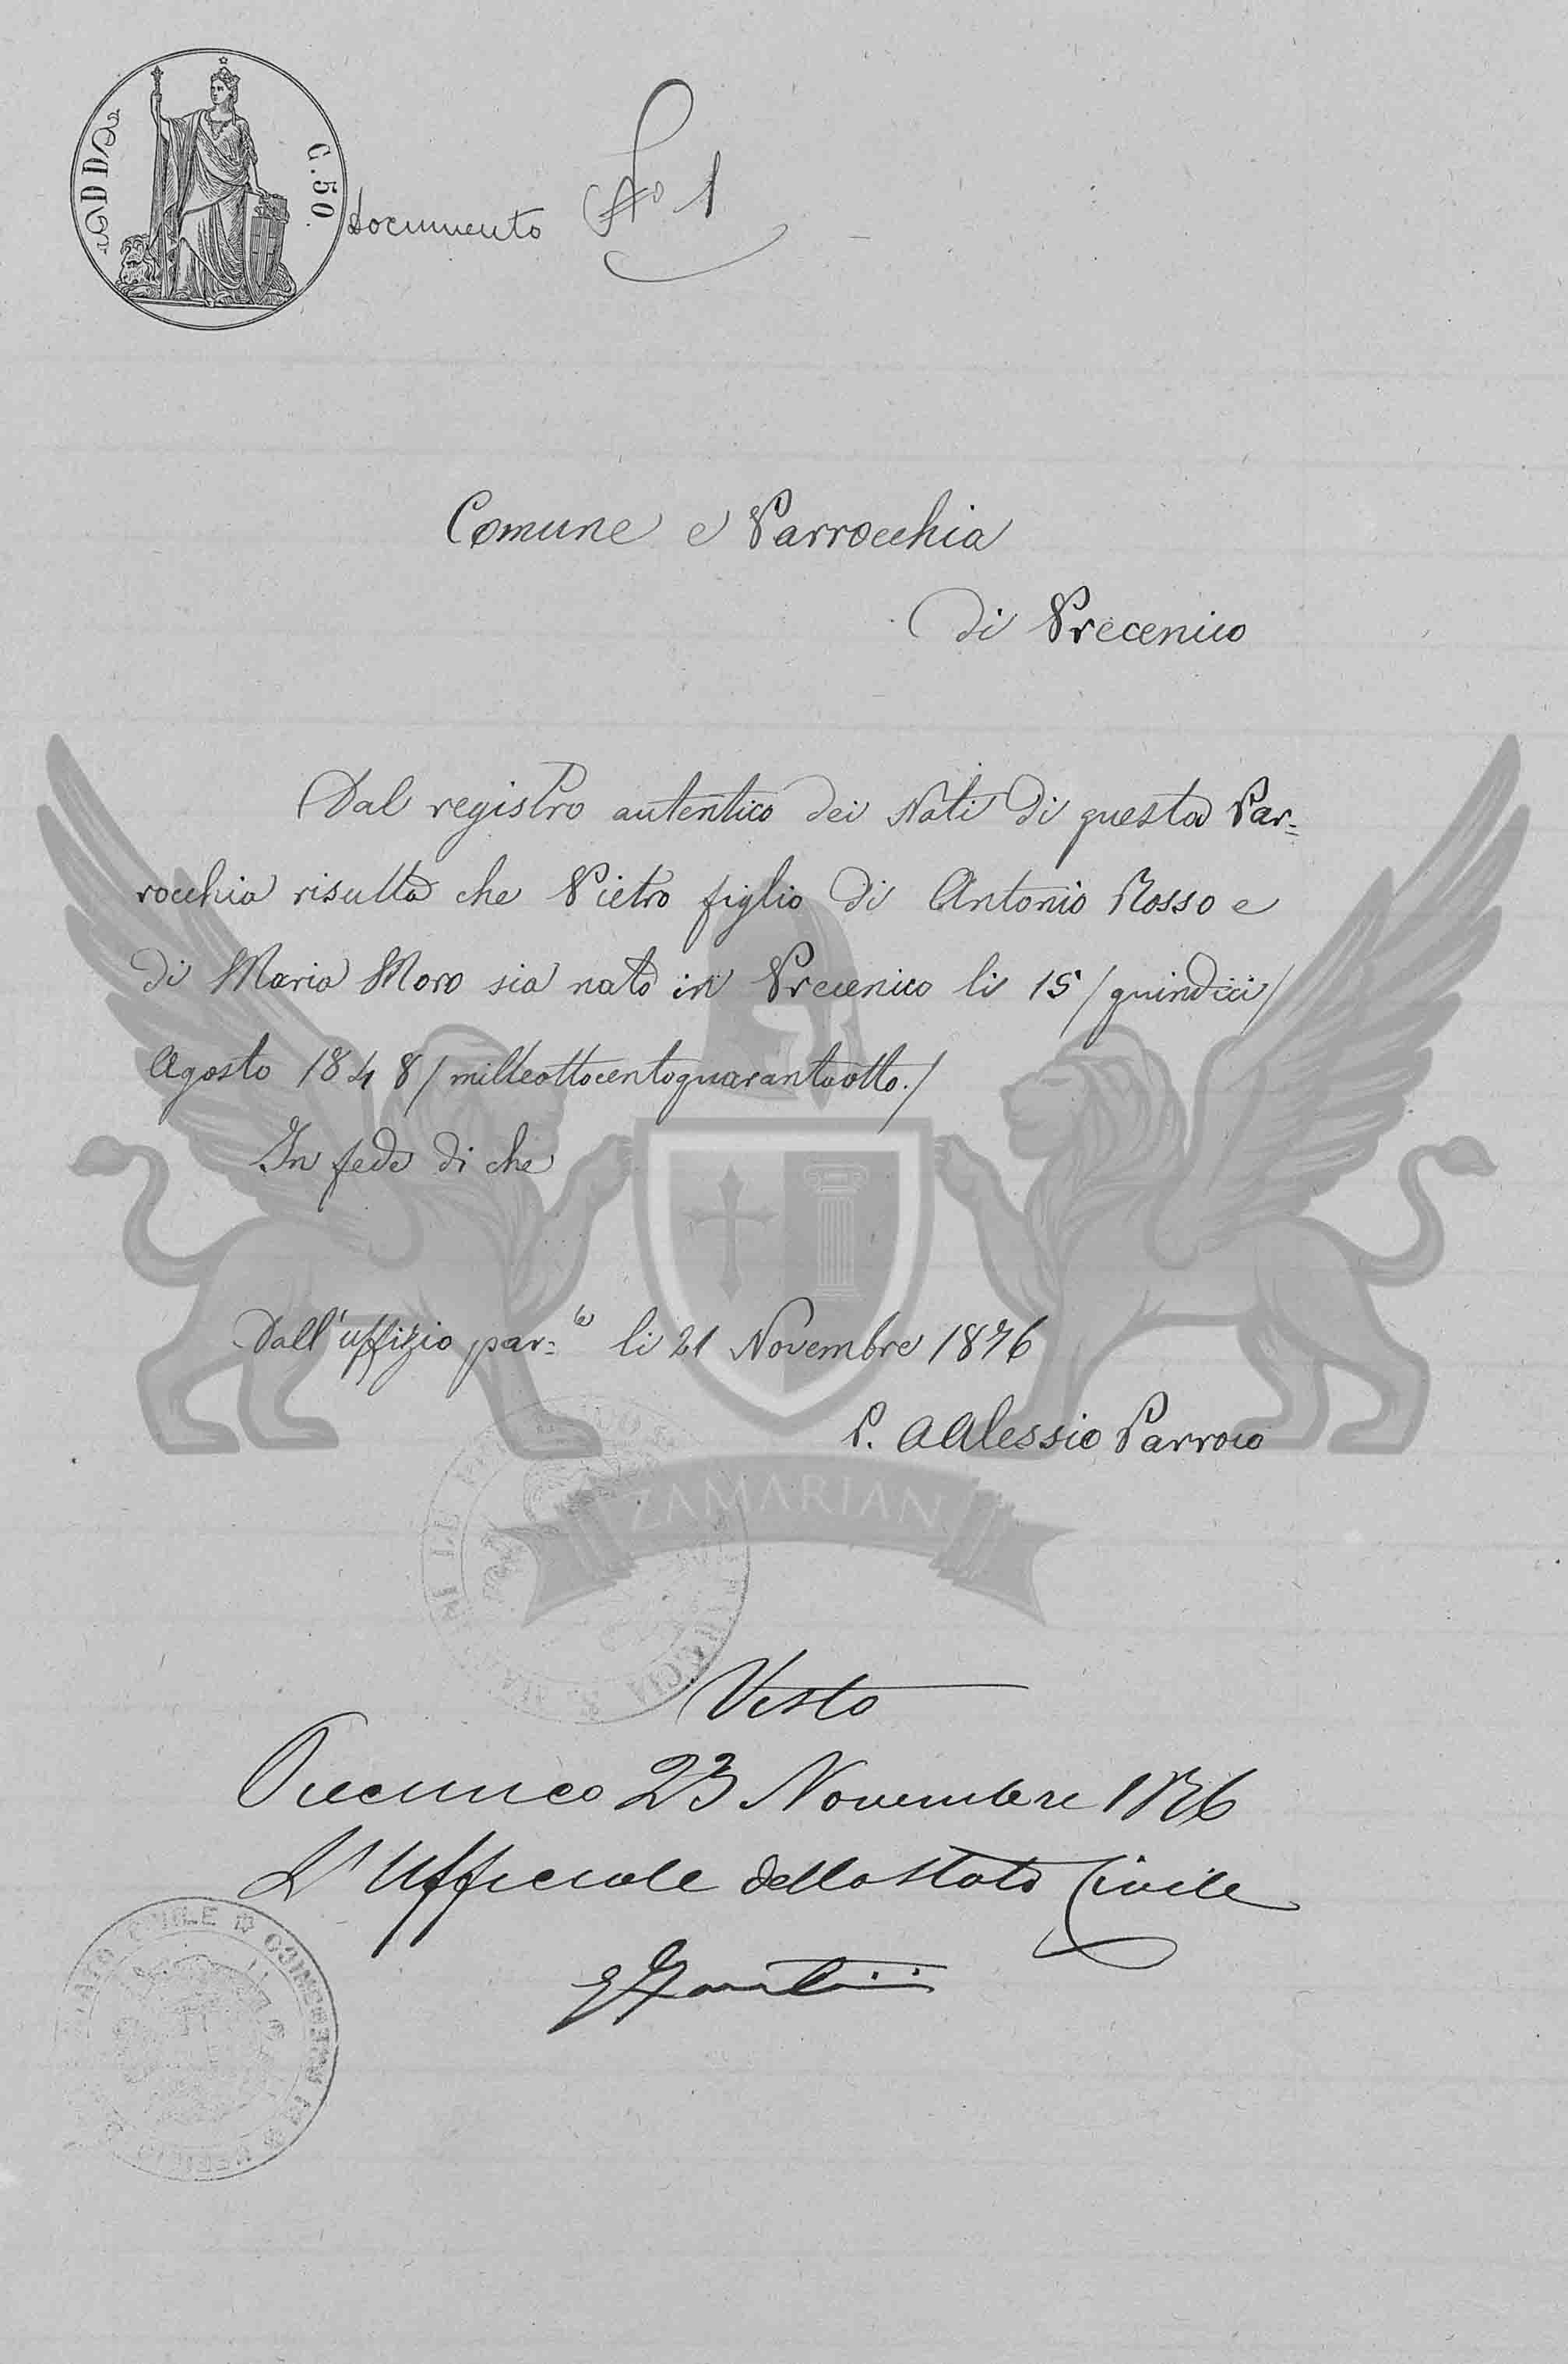 C. 50.
Documento No 1
Comune e Parrocchia
di Precenico
Dal registro autentico dei Nati di questa Par=
rocchia risulta che Pietro figlio di Antonio Rosso e
di Maria Moro sia nato in Precenico li 15 /quindici/
Agosto 1848 /milleottocentoquarantaotto./
In fede di che
Dall'uffizio par=le li 21 Novembre 1876
P. Alessio Parroco
ZAMARIAN
Visto
Precenico 23 Novembre 1876
L'Ufficiale dello Stato Civile